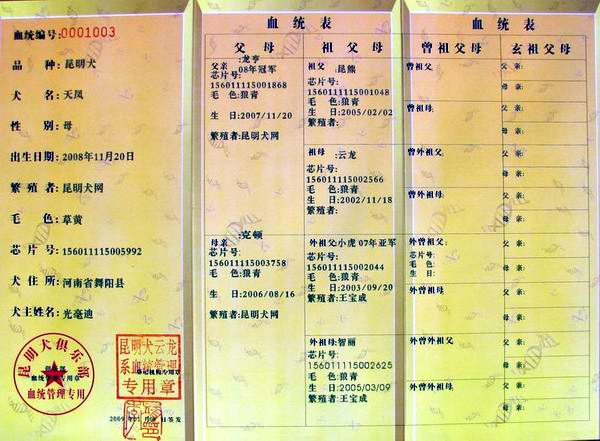 血统编号:0001003
品 种:昆明犬
犬 名:天凤
性 别:母
出生日期:2008年11月20日
繁 殖 者:昆明犬网
毛 色:草黄
芯 片 号:156011115005992
犬 住 所:河南省舞阳县
犬主姓名:光毫迪
昆明犬俱乐部
血统管理专用
昆明犬云龙
系血统管理
专用章
血统表
父母
祖父母
父亲:龙亨
08年冠军
芯片号:
156011115001868
毛 色:狼青
生 日:2007/11/20
繁殖者:昆明犬网
母亲:克顿
芯片号:
156011115003758
毛 色:狼青
生 日:2006/08/16
繁殖者:昆明犬网
祖父:昆熊
芯片号:
156011115001048
毛 色:狼青
生 日:2005/02/02
繁殖者:
祖母:云龙
芯片号:
156011115002566
毛 色:狼青
生 日:2002/11/18
繁殖者:
外祖父:小虎 07年亚军
芯片号:
156011115002044
毛 色:狼青
生 日:2003/09/20
繁殖者:王宝成
外祖母:智丽
芯片号:
156011115002625
毛 色:狼青
生 日:2005/03/09
繁殖者:王宝成
血统表
曾祖父母
玄祖父母
曾祖父:
曾祖母:
曾外祖父:
曾外祖母:
外曾祖父:
芯片号:
毛 色:
生 日:
外曾祖母:
外曾外祖父
曾外祖母:
父 亲:
母 亲:
父 亲:
母 亲:
父 亲:
母 亲:
父 亲:
母 亲:
父 亲:
母 亲:
父 亲:
母 亲:
父 亲:
母 亲:
父 亲:
母 亲: